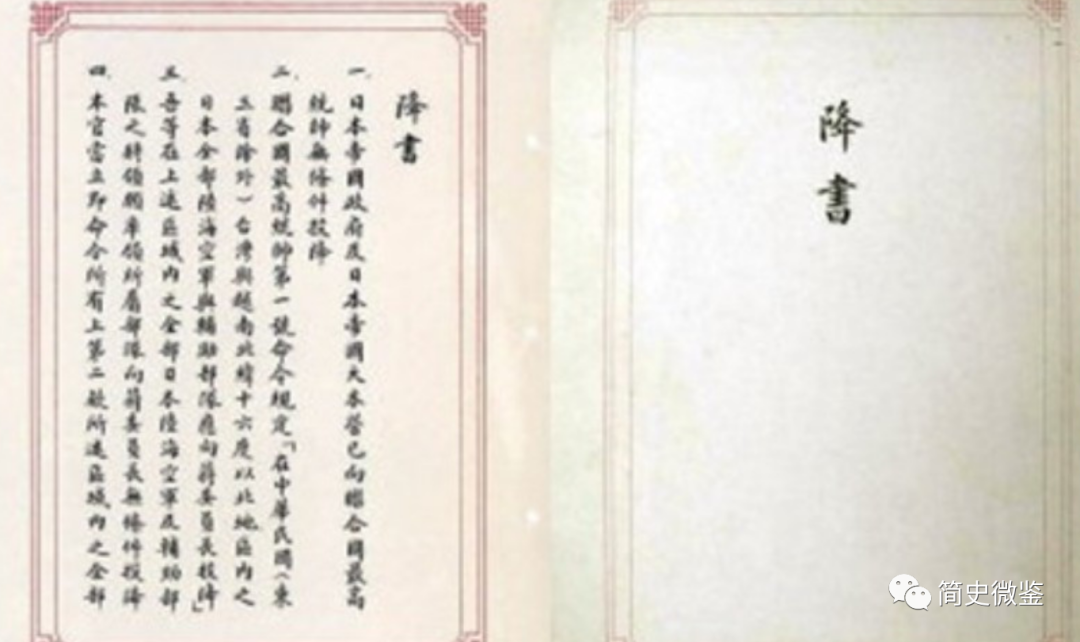 降書
一、日本帝國政府及日本帝國大本營已向聯合國最高
統帥無條件投降
二、聯合國最高統帥第一號命令規定「在中華民國(東
三省除外)台灣與越南北緯十六度以北地區內之
日本全部陸海空軍與輔助部隊應向蔣委員長投降」
三、吾等在上述區域內之全部日本陸海空軍及輔助部
隊之將領願率領所屬部隊向蔣委員長無條件投降
四、本官當立即命令所有上第二款所述區域內之全部
降書
简史微鉴